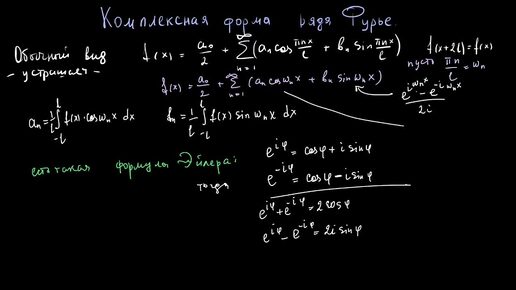 Комплексная форма ряда Фурье.
Обычный вид
- устрашает -
f(x) = a₀/2 + ∞∑n=1 (aₙcos πnx/l + bₙ sin πnx/l) f(x+2l) = f(x)
пусть πn/l = ωₙ
f(x) = a₀/2 + ∑n=1 (aₙcosωₙx + bₙ sinωₙx)
(e^{iωₙx} - e^{-iωₙx})/2i
aₙ = 1/l ∫_{-l}^{l} f(x)·cosωₙx dx bₙ = 1/l ∫_{-l}^{l} f(x) sinωₙx dx
есть такая формула Эйлера:
тогда
e^{iφ} = cosφ + i sinφ
e^{-iφ} = cosφ - i sinφ
e^{iφ} + e^{-iφ} = 2cosφ
e^{iφ} - e^{-iφ} = 2i sinφ